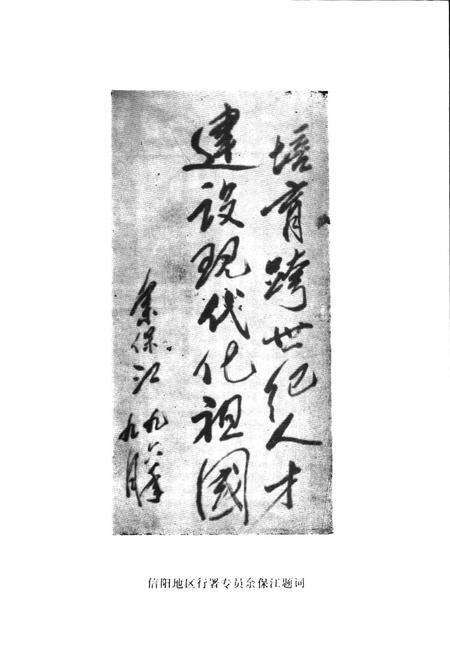 培育跨世纪人才
建设现代化祖國
余保江 九六年
九月
信阳地区行署专员余保江题词